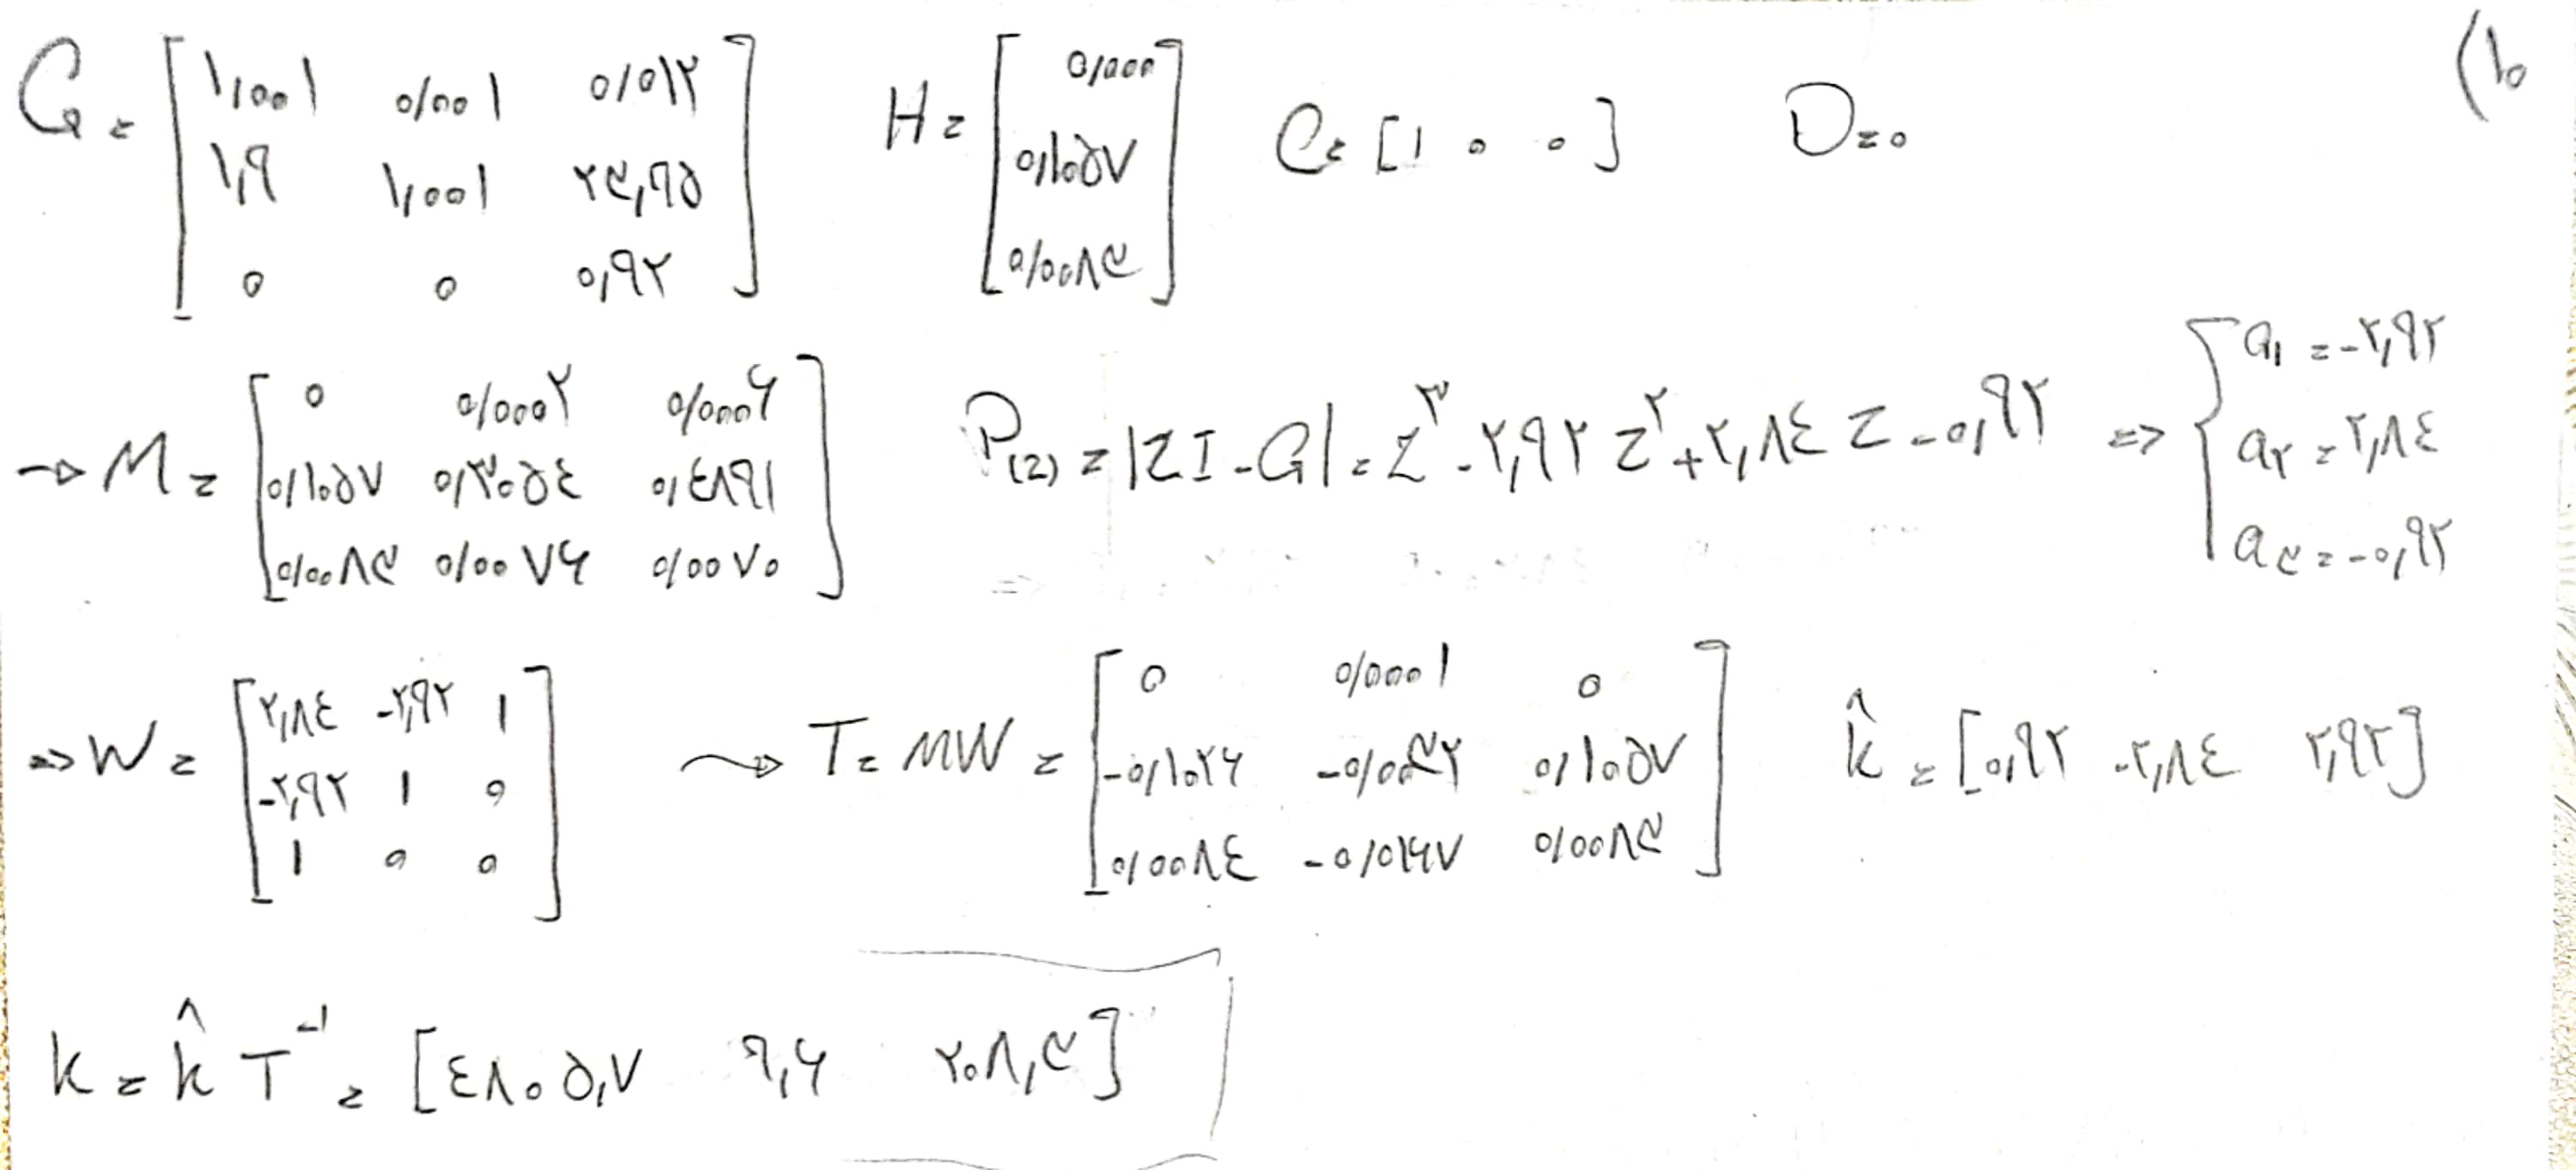 ۱۰)
G = [۱٫۰۰۱ ۰٫۰۰۱ ۰٫۰۱۲ ; ۱٫۹ ۱٫۰۰۱ ۲۳٫۹۵ ; ۰ ۰ ۰٫۹۲] H = [۰٫۰۰۰ ; ۰٫۱۰۵۷ ; ۰٫۰۰۸۳] C = [۱ ۰ ۰] D = ۰
→ M = [۰ ۰٫۰۰۰۲ ۰٫۰۰۰۶ ; ۰٫۱۰۵۷ ۰٫۳۰۵٤ ۰٫٤۸۹۱ ; ۰٫۰۰۸۳ ۰٫۰۰۷۶ ۰٫۰۰۷۰] P(z) = |ZI - G| = Z^۳ - ۲٫۹۲ Z^۲ + ۲٫۸٤ Z - ۰٫۹۲ => { a۱ = -۲٫۹۲ ; a۲ = ۲٫۸٤ ; a۳ = -۰٫۹۲
=> W = [۲٫۸٤ -۲٫۹۲ ۱ ; -۲٫۹۲ ۱ ۰ ; ۱ ۰ ۰] → T = MW = [۰ ۰٫۰۰۰۱ ۰ ; -۰٫۱۰۲۶ -۰٫۰۰۳۲ ۰٫۱۰۵۷ ; ۰٫۰۰۸٤ -۰٫۰۱۶۷ ۰٫۰۰۸۳] k̂ = [۰٫۹۲ -۲٫۸٤ ۲٫۹۲]
k = k̂ T^-۱ = [٤۸۰۵٫۷ ۹٫۶ ۲۰۸٫۳]